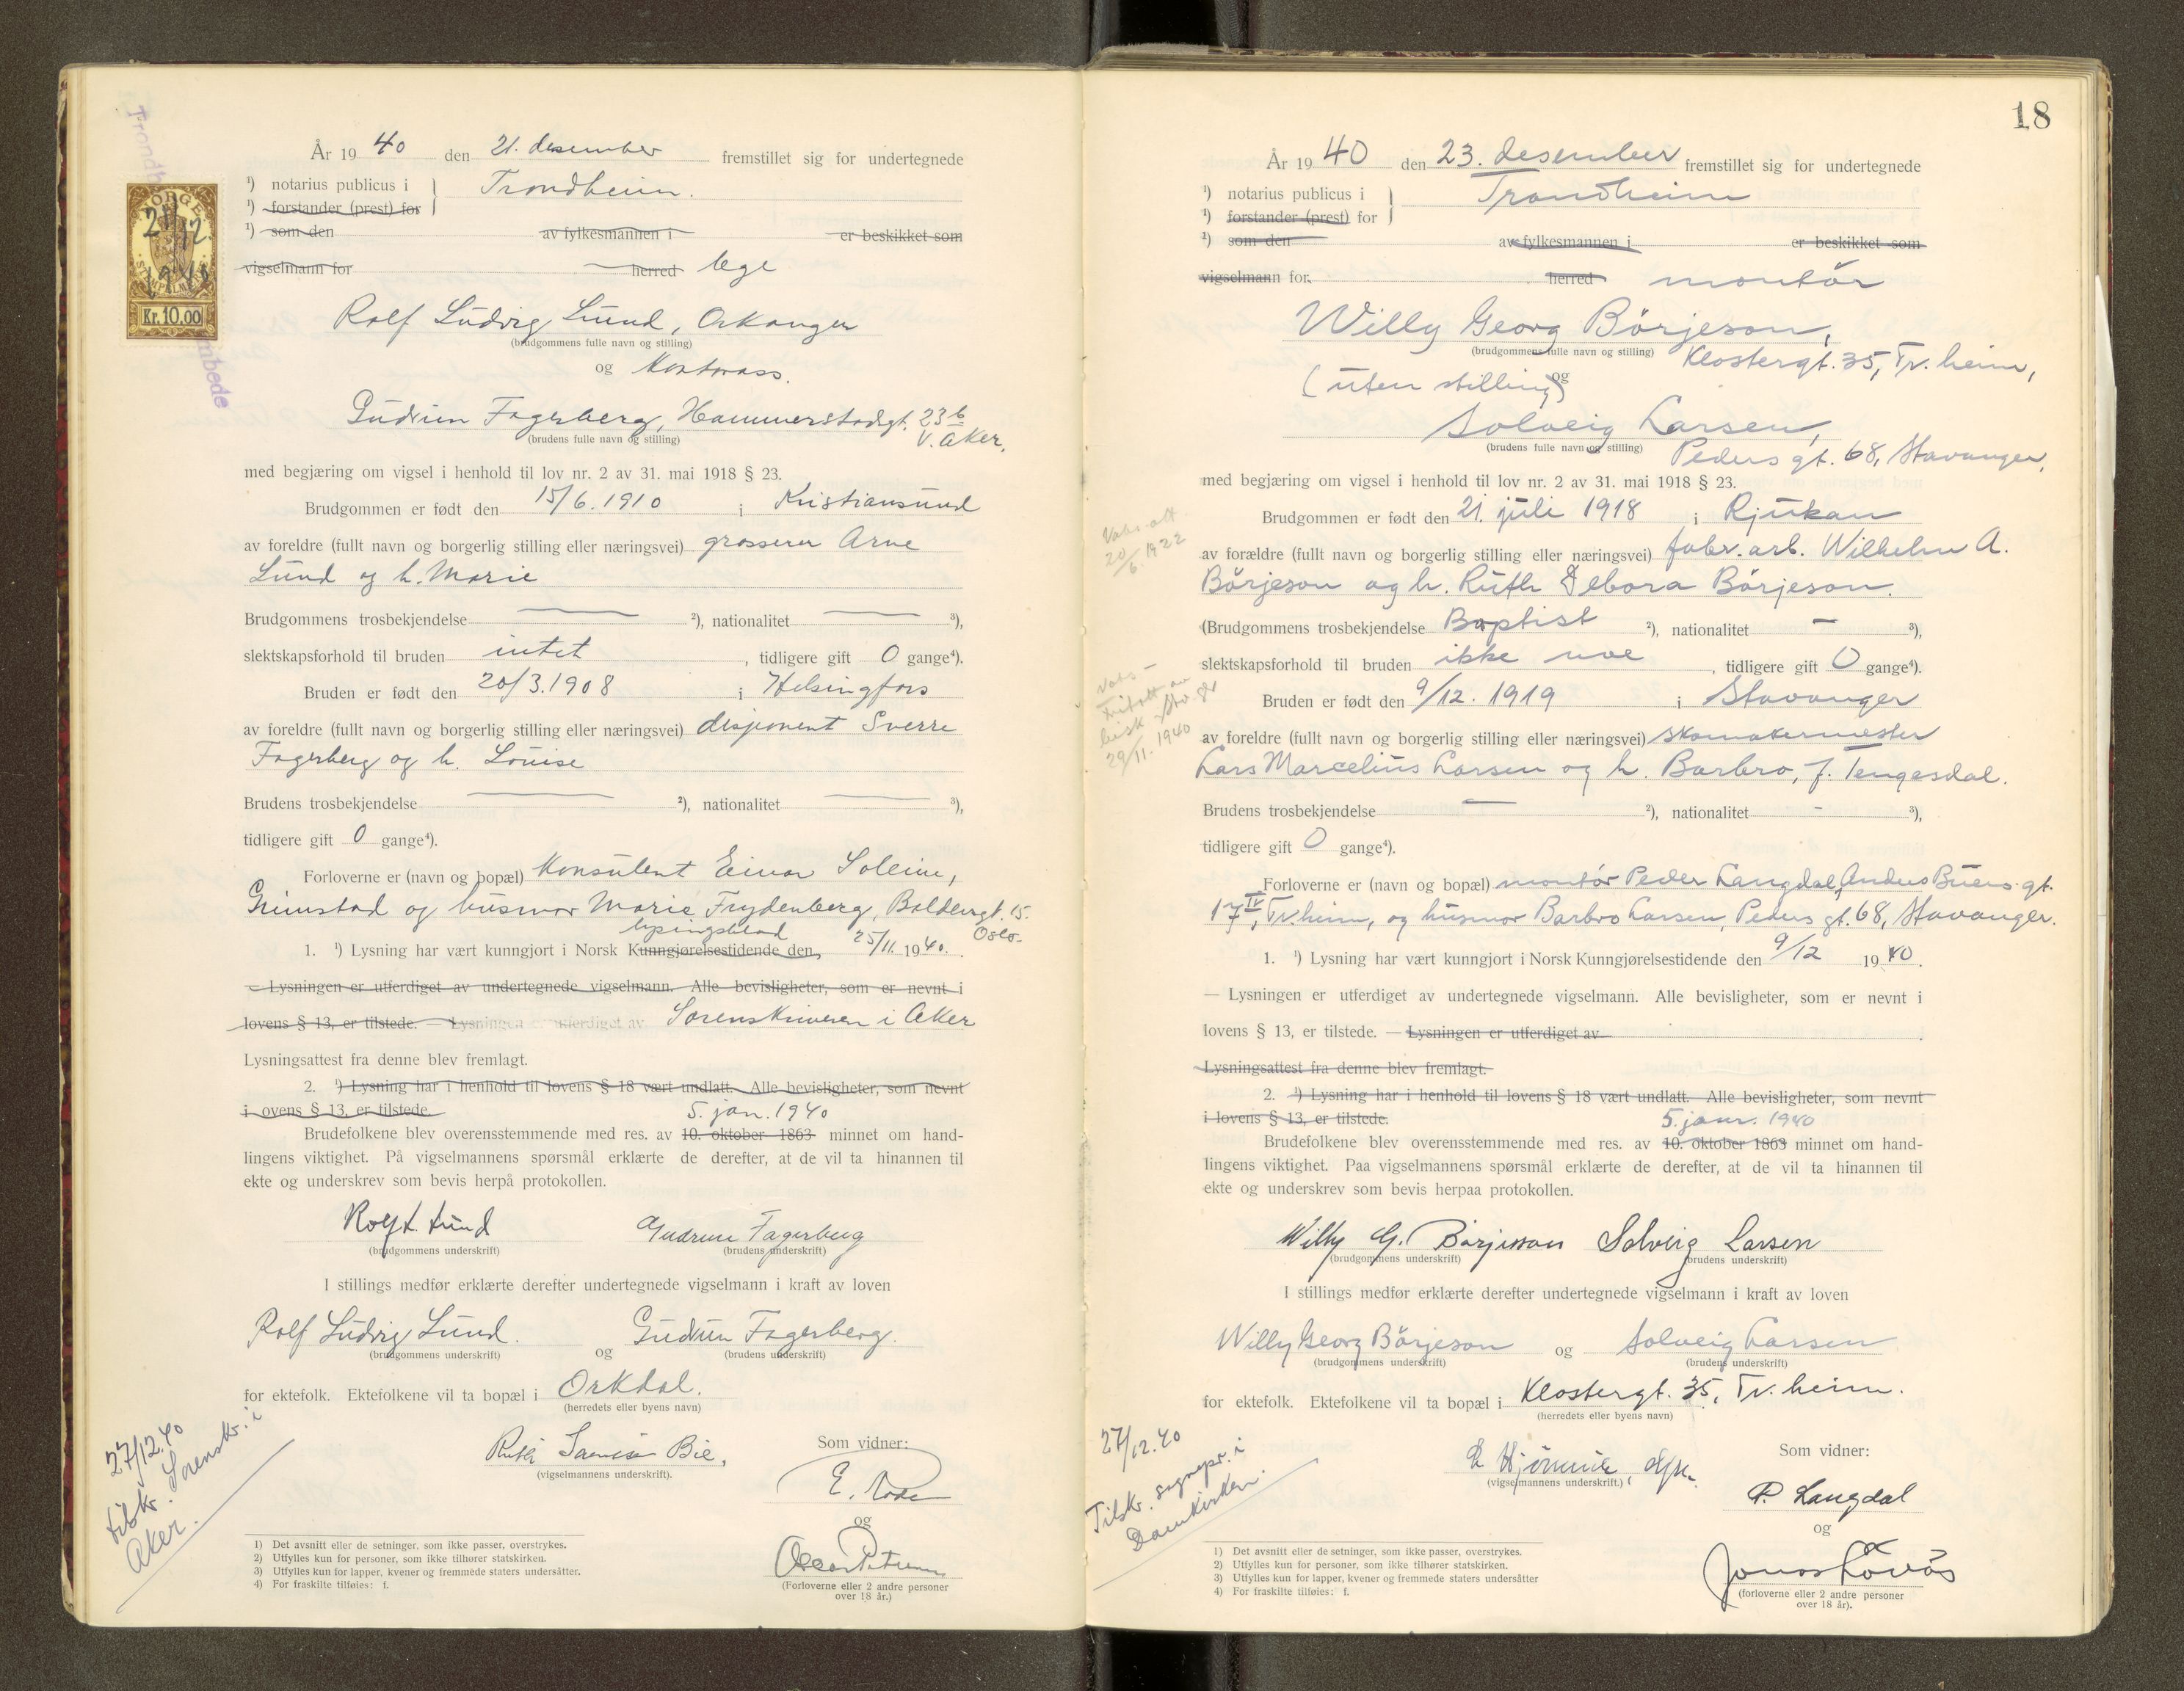 År 19 40 den 21. desember fremstillet sig for undertegnede
¹) notarius publicus i Trondheim.
¹) forstander (prest) for
¹) som den av fylkesmannen i er beskikket som
vigselmann for herred læge
NORGE
21/12.
1940
STEMPELMERKE
Kr. 10.00
Rolf Ludvig Lund, Orkanger
(brudgommens fulle navn og stilling)
og Kontorass.
Gudrun Fagerberg, Hammerstadsgt. 23 b
(brudens fulle navn og stilling)
V. Aker.
med begjæring om vigsel i henhold til lov nr. 2 av 31. mai 1918 § 23.
Brudgommen er født den 15/6. 1910 i Kristiansund
av foreldre (fullt navn og borgerlig stilling eller næringsvei) grosserer Arne
Lund og h. Marie
Brudgommens trosbekjendelse ²), nationalitet ³),
slektskapsforhold til bruden intet , tidligere gift 0 gange⁴).
Bruden er født den 20/3. 1908 i Helsingfors
av foreldre (fullt navn og borgerlig stilling eller næringsvei) disponent Sverre
Fagerberg og h. Louise
Brudens trosbekjendelse ²), nationalitet ³),
tidligere gift 0 gange⁴).
Forloverne er (navn og bopæl) Konsulent Einar Soleim,
Grimstad og husmor Marie Frydenberg, Baldersgt. 15.
lysingsblad Oslo.
1. ¹) Lysning har vært kunngjort i Norsk Kunngjørelsestidende den 25/11. 1940.
— Lysningen er utferdiget av undertegnede vigselmann. Alle bevisligheter, som er nevnt i
lovens § 13, er tilstede. — Lysningen er utferdiget av Sorenskriveren i Aker
Lysningsattest fra denne blev fremlagt.
2. ¹) Lysning har i henhold til lovens § 18 vært undlatt. Alle bevisligheter, som nevnt
i lovens § 13, er tilstede
5. jan. 1940
Brudefolkene blev overensstemmende med res. av 10. oktober 1863 minnet om hand-
lingens viktighet. På vigselmannens spørsmål erklærte de derefter, at de vil ta hinannen til
ekte og underskrev som bevis herpå protokollen.
Rolf L. Lund Gudrun Fagerberg
(brudgommens underskrift) (brudens underskrift)
I stillings medfør erklærte derefter undertegnede vigselmann i kraft av loven
Rolf Ludvig Lund. og Gudrun Fagerberg.
(brudgommens underskrift) (brudens underskrift)
for ektefolk. Ektefolkene vil ta bopæl i Orkdal.
(herredets eller byens navn)
27/12.40
tilskr. Sorenskr. i
Aker.
Som vidner:
Bie,
(vigselmannens underskrift).
E.
og
(Forloverne eller 2 andre personer
over 18 år.)
1) Det avsnitt eller de setninger, som ikke passer, overstrykes.
2) Utfylles kun for personer, som ikke tilhører statskirken.
3) Utfylles kun for lapper, kvener og fremmede staters undersåtter.
4) For fraskilte tilføies: f.
18
År 19 40 den 23. desember fremstillet sig for undertegnede
¹) notarius publicus i Trondheim
¹) forstander (prest) for
¹) som den av fylkesmannen i er beskikket som
vigselmann for herred montör
Willy Georg Börjeson,
(brudgommens fulle navn og stilling) Klostergt. 35, Tr. heim,
(uten stilling) og
Solveig Larsen,
(brudens fulle navn og stilling) Peders gt. 68, Stavanger,
med begjæring om vigsel i henhold til lov nr. 2 av 31. mai 1918 § 23.
Brudgommen er født den 21. juli 1918 i Rjukan
av forældre (fullt navn og borgerlig stilling eller næringsvei) fabr. arb. Wilhelm A.
Börjeson og h. Ruth Debora Börjeson.
(Brudgommens trosbekjendelse Baptist ²), nationalitet - ³),
slektskapsforhold til bruden ikke noe , tidligere gift 0 gange⁴).
Bruden er født den 9/12. 1919 i Stavanger
av foreldre (fullt navn og borgerlig stilling eller næringsvei) skomakermester
Lars Marcelius Larsen og h. Barbro, f. Tengesdal.
Brudens trosbekjendelse — ²), nationalitet - ³),
tidligere gift 0 gange⁴).
20/6. 1922
29/11. 1940
Forloverne er (navn og bopæl) montör Peder Langdal, Anders Buens gt.
17 IV, Tr.heim, og husmor Barbro Larsen, Peders gt. 68, Stavanger.
1. ¹) Lysning har vært kunngjort i Norsk Kunngjørelsestidende den 9/12 1940.
— Lysningen er utferdiget av undertegnede vigselmann. Alle bevisligheter, som er nevnt i
lovens § 13, er tilstede. — Lysningen er utferdiget av
Lysningsattest fra denne blev fremlagt.
2. ¹) Lysning har i henhold til lovens § 18 vært undlatt. Alle bevisligheter, som nevnt
i lovens § 13, er tilstede.
5. janr. 1940
Brudefolkene blev overensstemmende med res. av 10. oktober 1863 minnet om hand-
lingens viktighet. Paa vigselmannens spørsmål erklærte de derefter, at de vil ta hinannen til
ekte og underskrev som bevis herpaa protokollen.
Willy G. Börjeson Solveig Larsen
(brudgommens underskrift) (brudens underskrift)
I stillings medfør erklærte derefter undertegnede vigselmann i kraft av loven
Willy Georg Börjeson og Solveig Larsen
(brudgommens underskrift) (brudens underskrift)
for ektefolk. Ektefolkene vil ta bopæl i Klostergt. 35, Tr. heim.
(herredets eller byens navn)
27/12.40
Tilskr. sognepr. i
Domkirken.
Som vidner:
(vigselmannens underskrift.)
P. Langdal
og
Jonas
(forloverne eller 2 andre personer
over 18 år).
1) Det avsnitt eller de setninger, som ikke passer, overstrykes.
2) Utfylles kun for personer, som ikke tilhører statskirken.
3) Utfylles kun for lapper, kvener og fremmede staters undersåtter
4) For fraskilte tilføies: f.